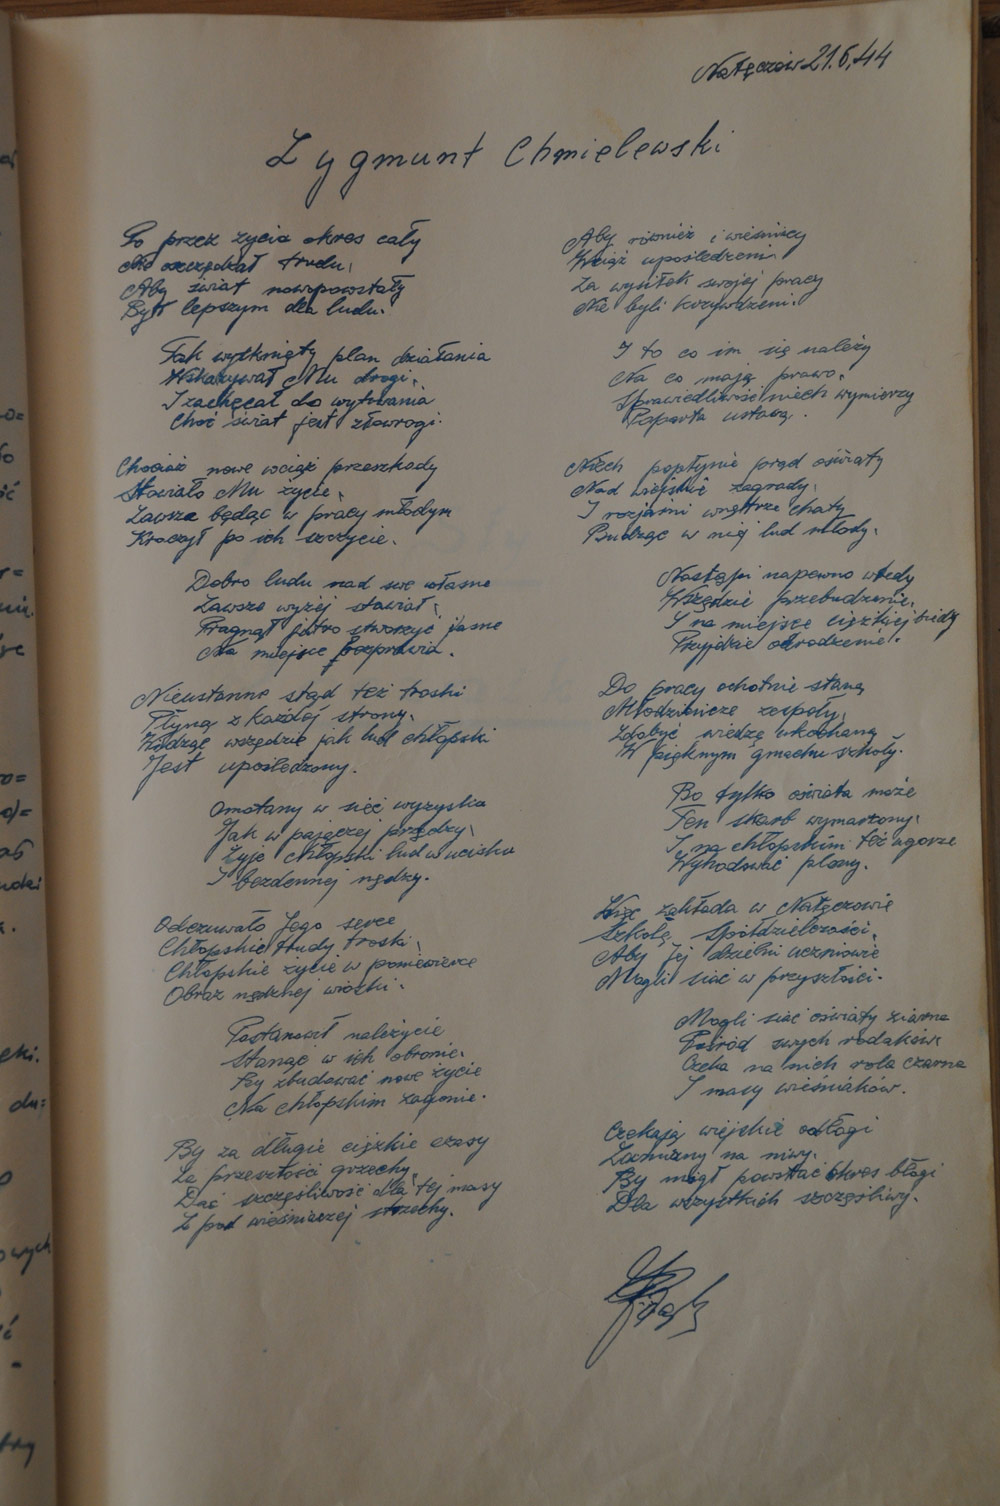 Nałęczów 21.6.44
Zygmunt Chmielewski
Po przez życia okres cały
Nie oszczędzał trudu,
Aby świat nowopowstały
Był lepszym dla ludu.
Tak wytknięty plan działania
Wskazywał Mu drogi,
I zachęcał do wytrwania
Choć świat jest złowrogi.
Chociaż nowe wciąż przeszkody
Stawiało Mu życie,
Zawsze będąc w pracy młodym
Kroczył po ich szczycie.
Dobro ludu nad swe własne
Zawsze wyżej stawiał,
Pragnął jutro stworzyć jasne
Na miejsce bezprawia.
Nieustanne stąd też troski
Płyną z każdej strony,
Widząc wszędzie jak lud chłopski
Jest upośledzony.
Omotany w sieć wyzysku
Jak w pajęczej przędzy,
Żyje chłopski lud w ucisku
I bezdennej nędzy.
Odczuwało Jego serce
Chłopskie trudy troski,
Chłopskie życie w poniewierce
Obraz nędznej wioski.
Postanowił należycie
Stanąć w ich obronie,
By zbudować nowe życie
Na chłopskim zagonie.
By za długie ciężkie czasy
Za przeszłości grzechy,
Dać szczęśliwość dla tej masy
Z pod wieśniaczej strzechy.
Aby również i wieśniacy
Wciąż upośledzeni,
Za wysiłek swojej pracy
Nie byli krzywdzeni.
I to co im się należy
Na co mają prawo,
Sprawiedliwość niech wymierzy
Poparta ustawą.
Niech popłynie prąd oświaty
Nad wiejskie zagrody,
I rozjaśni wnętrze chaty
Budząc w niej lud młody.
Nastąpi napewno wtedy
Wszędzie przebudzenie,
I na miejsce ciężkiej biedy
Przyjdzie odrodzenie.
Do pracy ochotnie staną
Młodzieńcze zespoły,
Zdobyć wiedzę ukochaną
W pięknym gmachu szkoły.
Bo tylko oświata może
Ten skarb wymarzony,
I na chłopskim też ugorze
Wyhodować plony.
Więc zakłada w Nałęczowie
Szkołę Spółdzielczości,
Aby Jej dzielni uczniowie
Mogli siać w przyszłości.
Mogli siać oświaty ziarna
Pośród swych rodaków,
Czeka na nich rola czarna
I masy wieśniaków.
Czekają wiejskie odłogi
Zamiany na niwy,
By mógł powstać okres błogi
Dla wszystkich szczęśliwy.